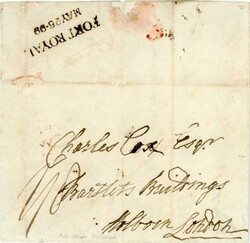 FORT ROYAL
MAY 28·99
Charles Cox Esqr.
Bartlets Buildings
Holborn London